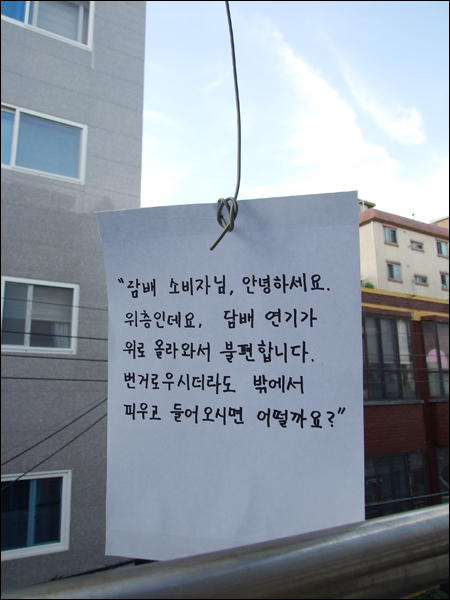 "담배 소비자님, 안녕하세요.
위층인데요, 담배 연기가
위로 올라와서 불편합니다.
번거로우시더라도 밖에서
피우고 들어오시면 어떨까요?"